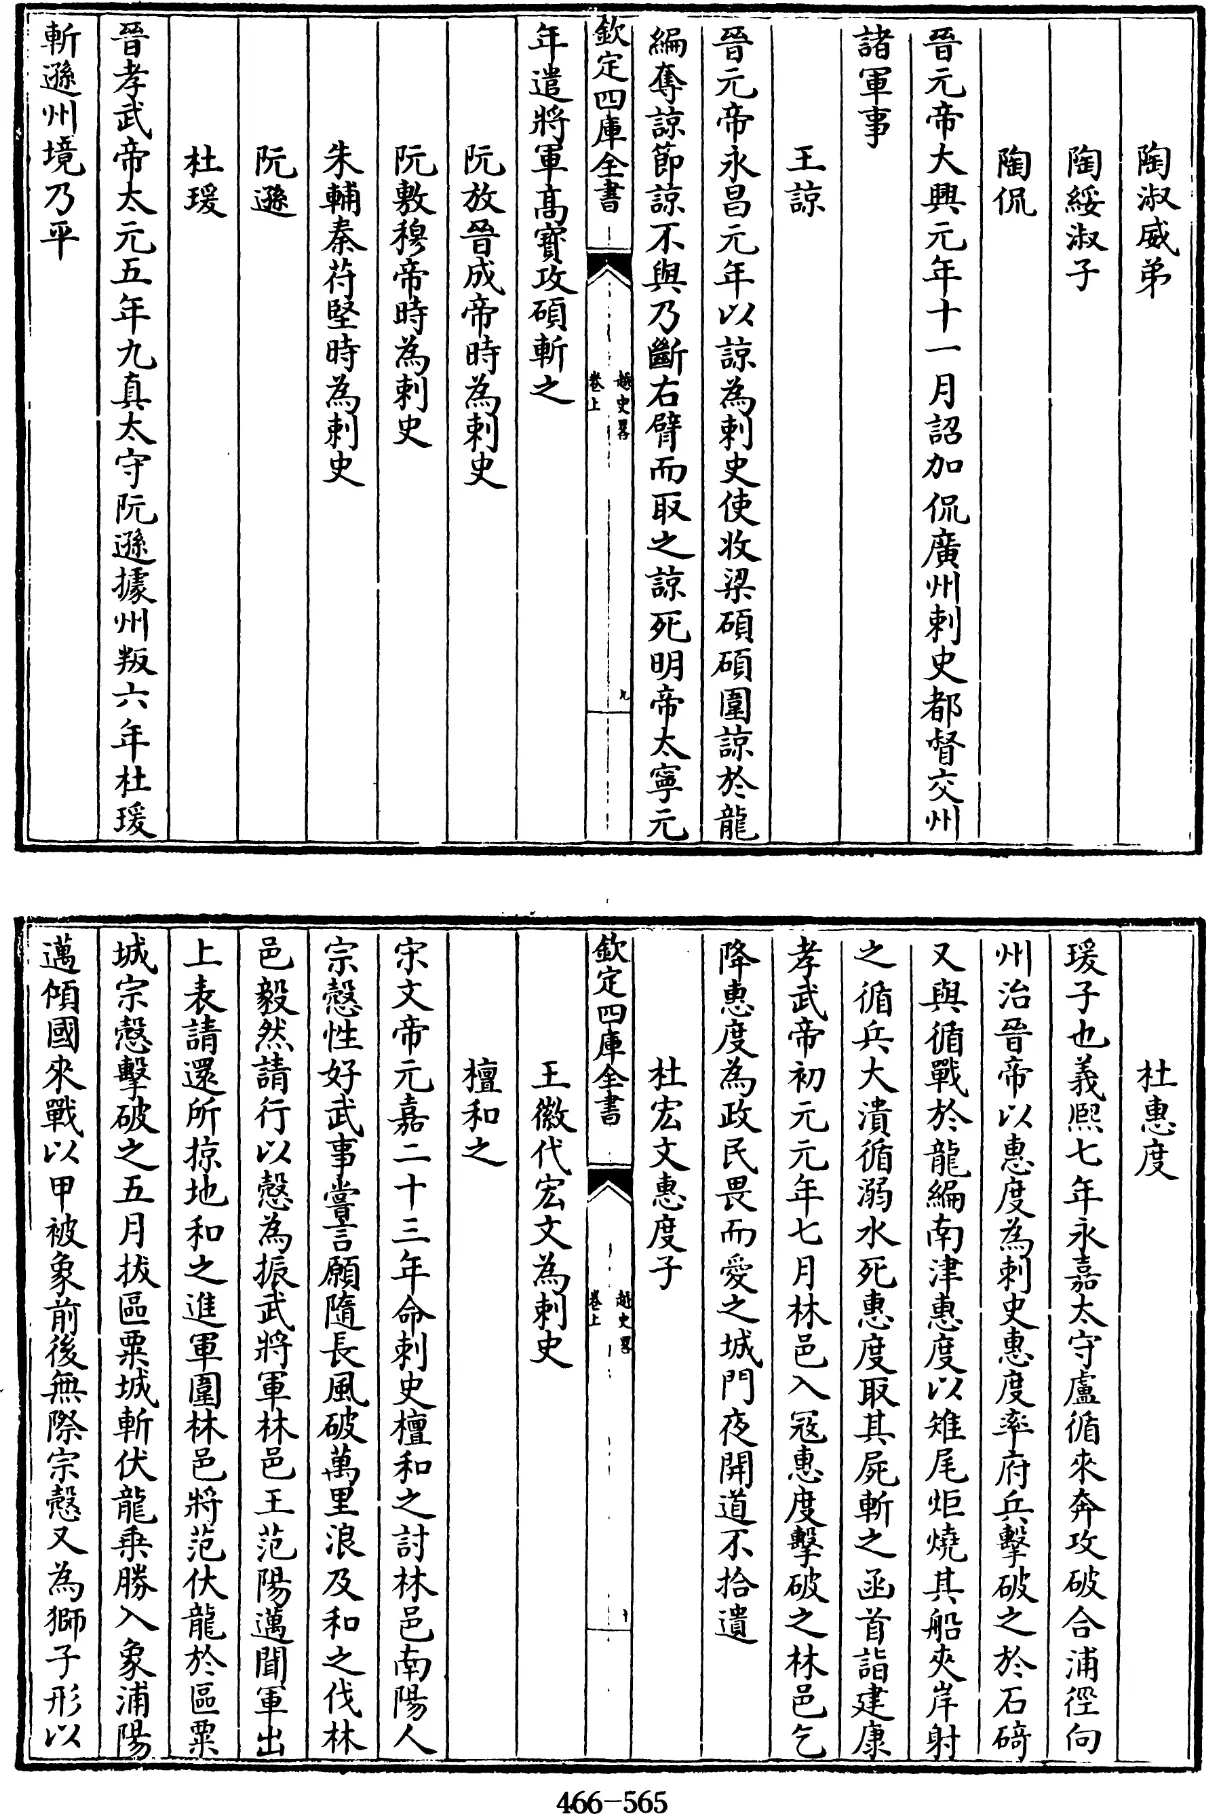 陶淑威弟
陶綏淑子
陶侃
晉元帝大興元年十一月詔加侃廣州刺史都督交州
諸軍事
王諒
晉元帝永昌元年以諒為刺史使收梁碩碩圍諒於龍
編奪諒節諒不與乃斷右臂而取之諒死明帝太寧元
欽定四庫全書
越史畧
卷上
九
年遣將軍髙寳攻碩斬之
阮放晉成帝時為刺史
阮敷穆帝時為刺史
朱輔秦苻堅時為刺史
阮遜
杜瑗
晉孝武帝太元五年九真太守阮遜據州叛六年杜瑗
斬遜州境乃平
杜惠度
瑗子也義熙七年永嘉太守盧循來奔攻破合浦徑向
州治晉帝以惠度為刺史惠度率府兵擊破之於石碕
又與循戰於龍編南津惠度以雉尾炬燒其船夾岸射
之循兵大潰循溺水死惠度取其屍斬之函首詣建康
孝武帝初元元年七月林邑入冦惠度擊破之林邑乞
降惠度為政民畏而愛之城門夜開道不拾遺
杜宏文惠度子
欽定四庫全書
越史畧
卷上
十
王徽代宏文為刺史
檀和之
宋文帝元嘉二十三年命刺史檀和之討林邑南陽人
宗慤性好武事嘗言願隨長風破萬里浪及和之伐林
邑毅然請行以慤為振武將軍林邑王范陽邁聞軍出
上表請還所掠地和之進軍圍林邑將范伏龍於區粟
城宗慤擊破之五月拔區粟城斬伏龍乘勝入象浦陽
邁傾國來戰以甲被象前後無際宗慤又為獅子形以
466-565